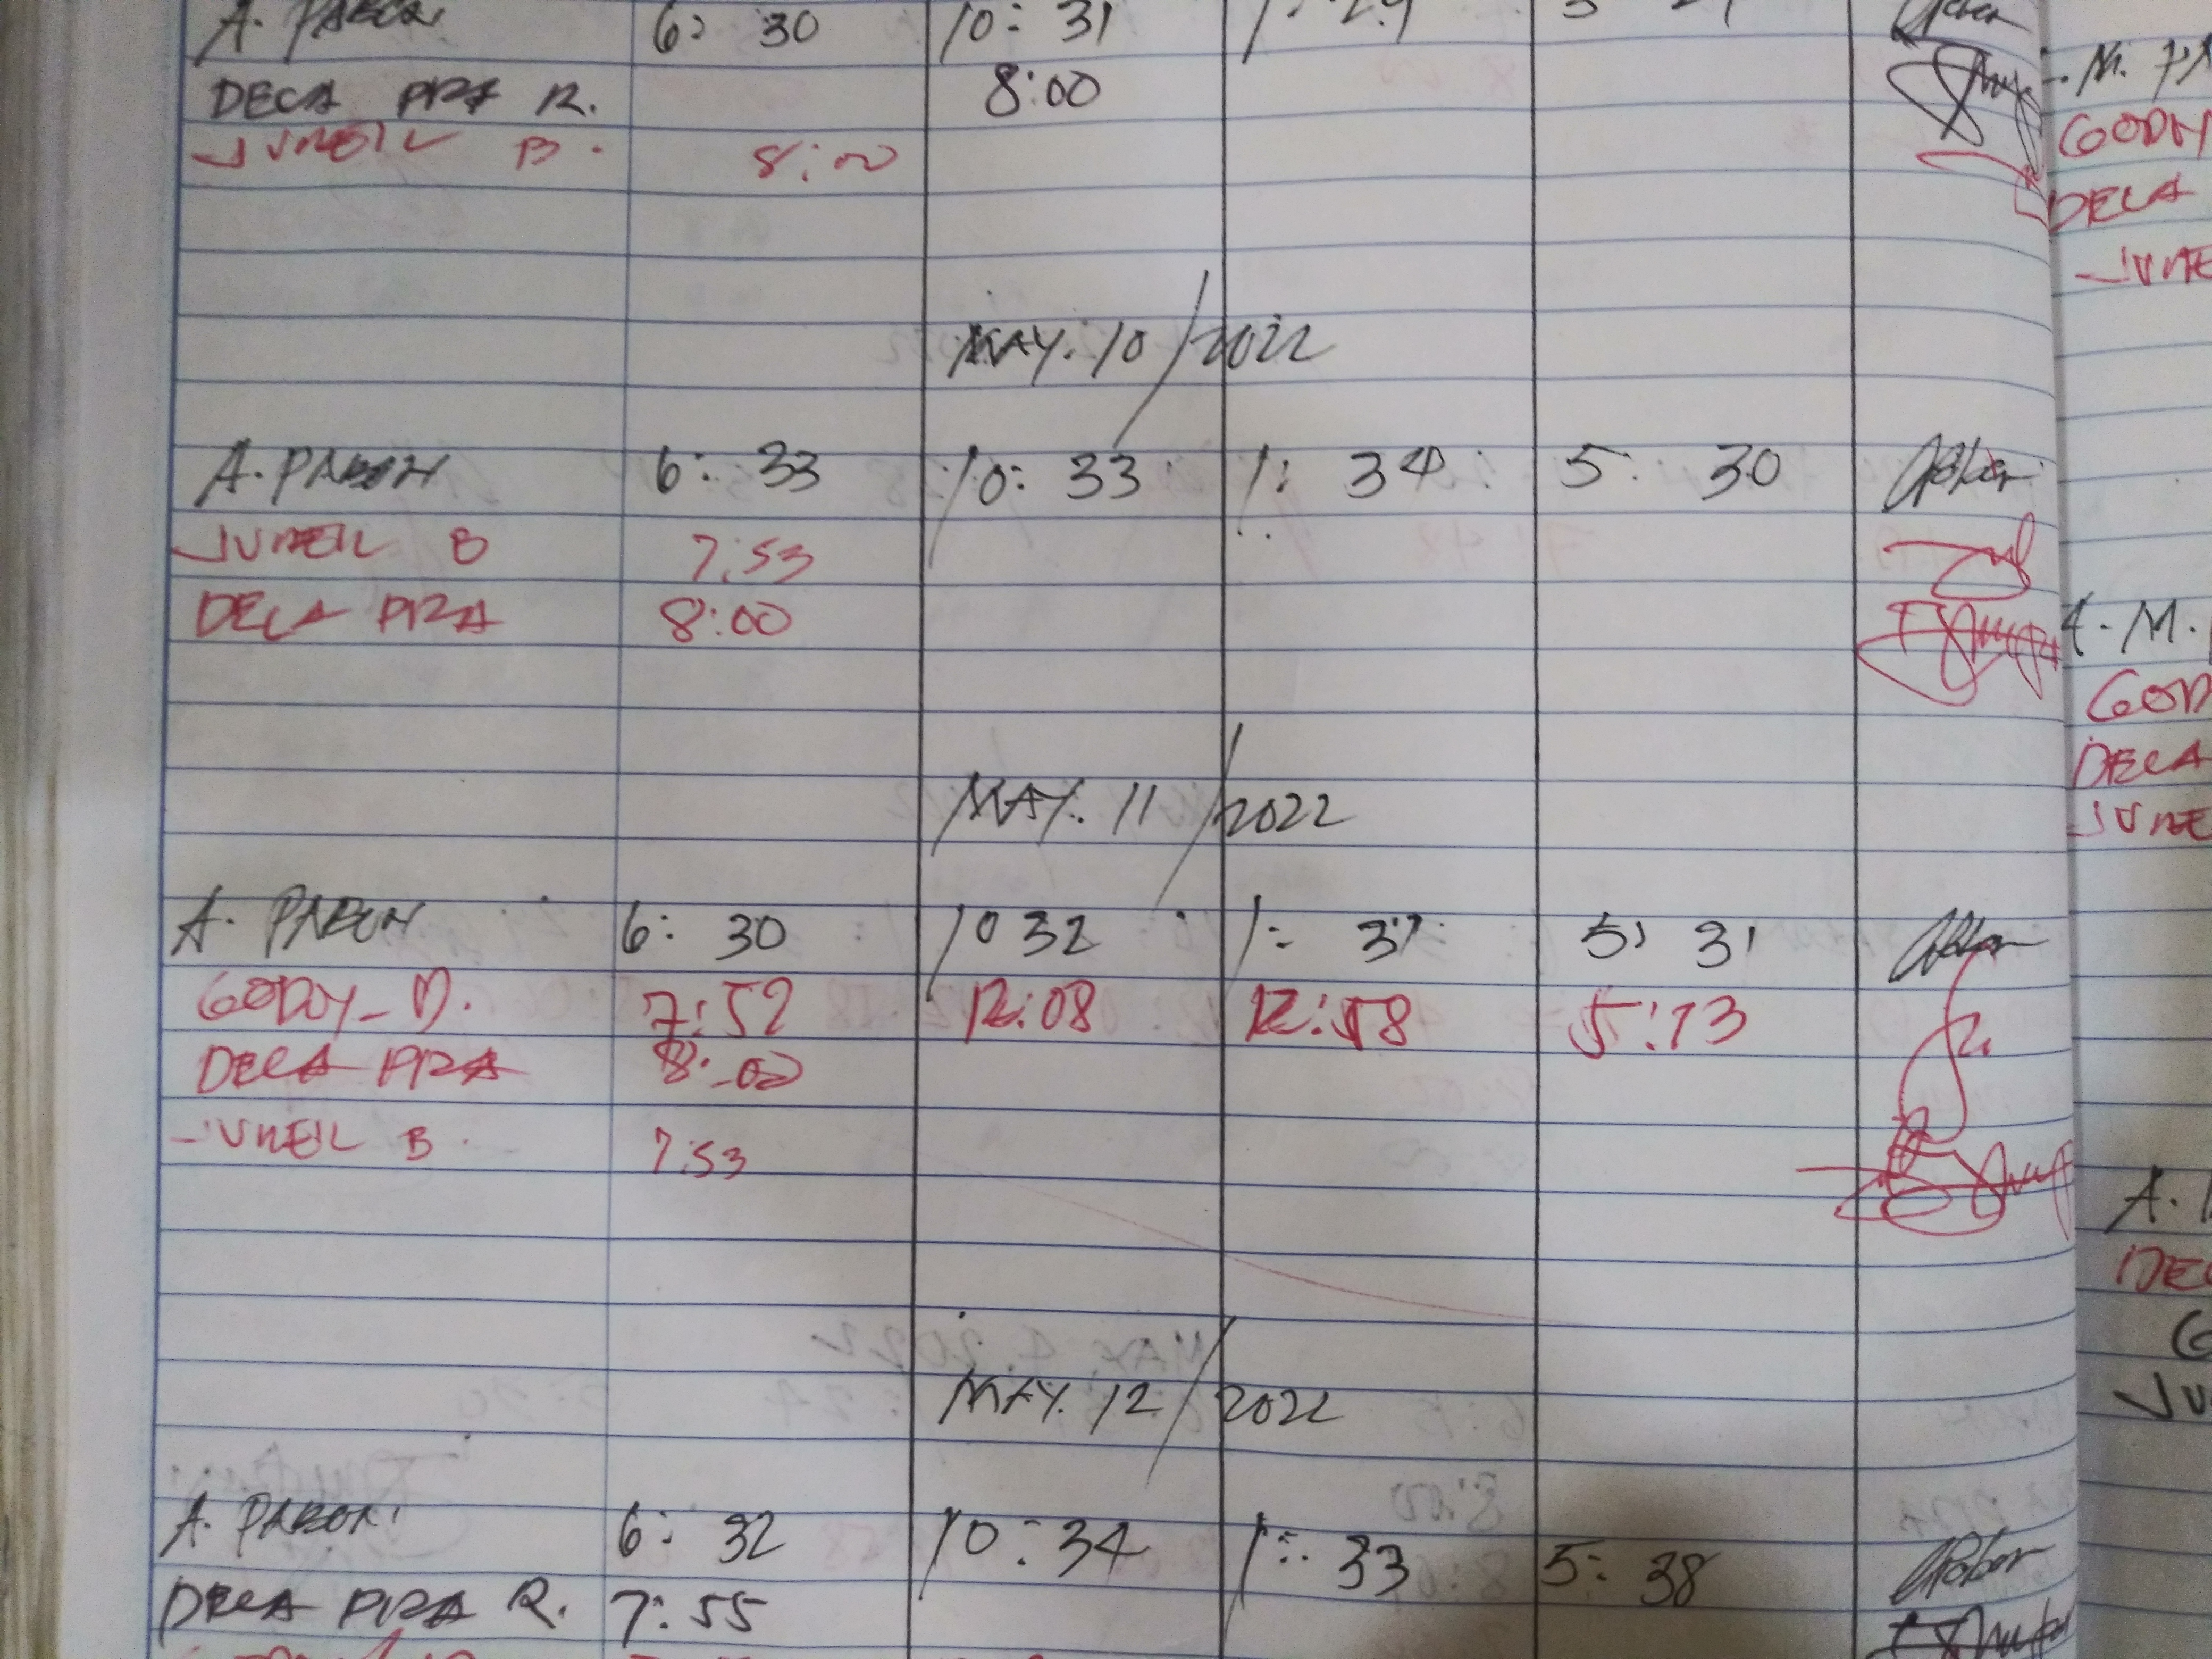 A. PABON 6: 30 10: 31 1: 29
DECA PRA R. 8:00
JUNEIL B. 8:00
MAY. 10/2022
A. PABON 6: 33 10: 33 1: 34 5: 30
JUNEIL B 7:53
DECA PRA 8:00
MAY. 11/2022
A. PABON 6: 30 10 32 1: 37 5: 31
GODOY_D. 7:52 12:08 12:58 5:13
DECA PRA 8:00
JUNEIL B. 7:53
MAY. 12/2022
A. PABON. 6: 32 10: 34 1: 33 5: 38
DECA PRA R. 7:55
DECA
DECA